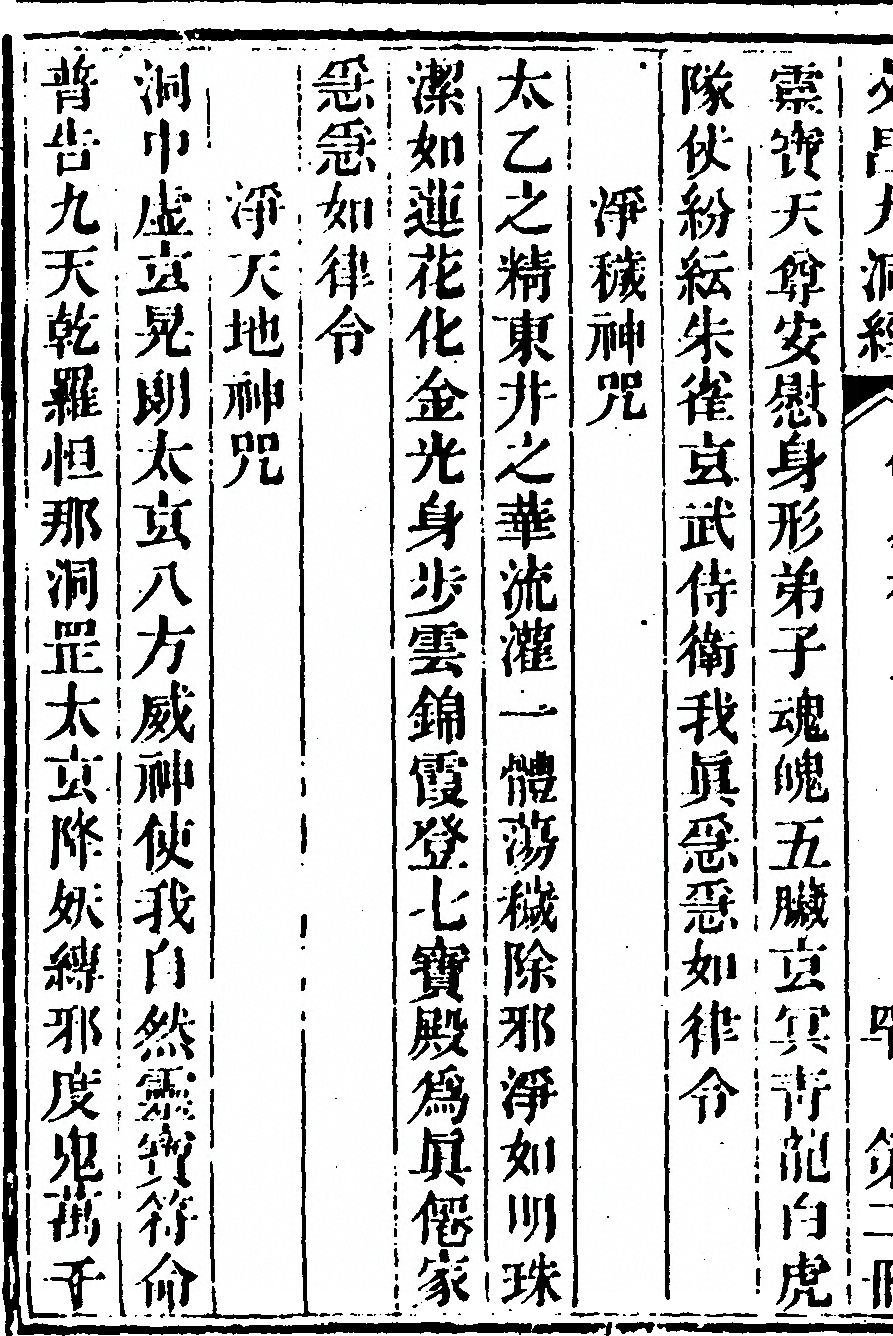 靈寶天尊安慰身形弟子魂魄五臟玄冥青龍白虎
隊仗紛紜朱雀玄武侍衛我眞急急如律令
淨穢神咒
太乙之精東井之華流灌一體蕩穢除邪淨如明珠
潔如蓮花化金光身步雲錦霞登七寶殿爲眞僊家
急急如律令
淨天地神咒
洞中虛玄晃朗太玄八方威神使我自然靈寶符命
普告九天乾羅怛那洞罡太玄降妖縛邪度鬼萬千